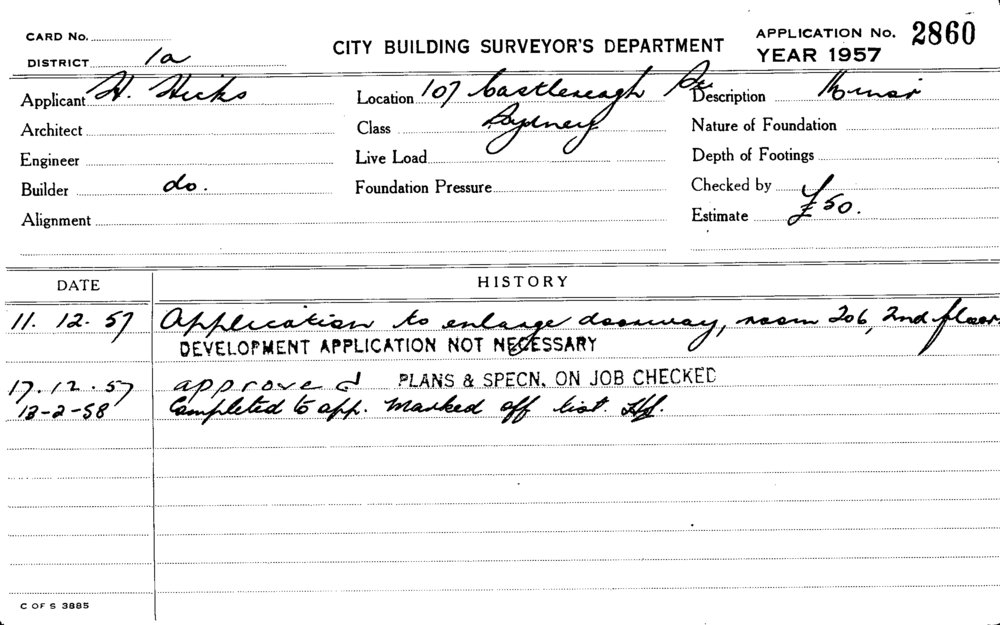 CARD No.
DISTRICT 1a
CITY BUILDING SURVEYOR'S DEPARTMENT
APPLICATION No. 2860
YEAR 1957
Applicant H. Hicks
Location 107 Castlereagh St.
Description Minor
Architect
Class Sydney
Nature of Foundation
Engineer
Live Load
Depth of Footings
Builder do.
Foundation Pressure
Checked by
Alignment
Estimate £50.
DATE HISTORY
11.12.57 Application to enlarge doorway, room 206, 2nd floor.
DEVELOPMENT APPLICATION NOT NECESSARY
17.12.57 approved PLANS & SPECN. ON JOB CHECKED
13-2-58 Completed to app. Marked off list.
C OF S 3885